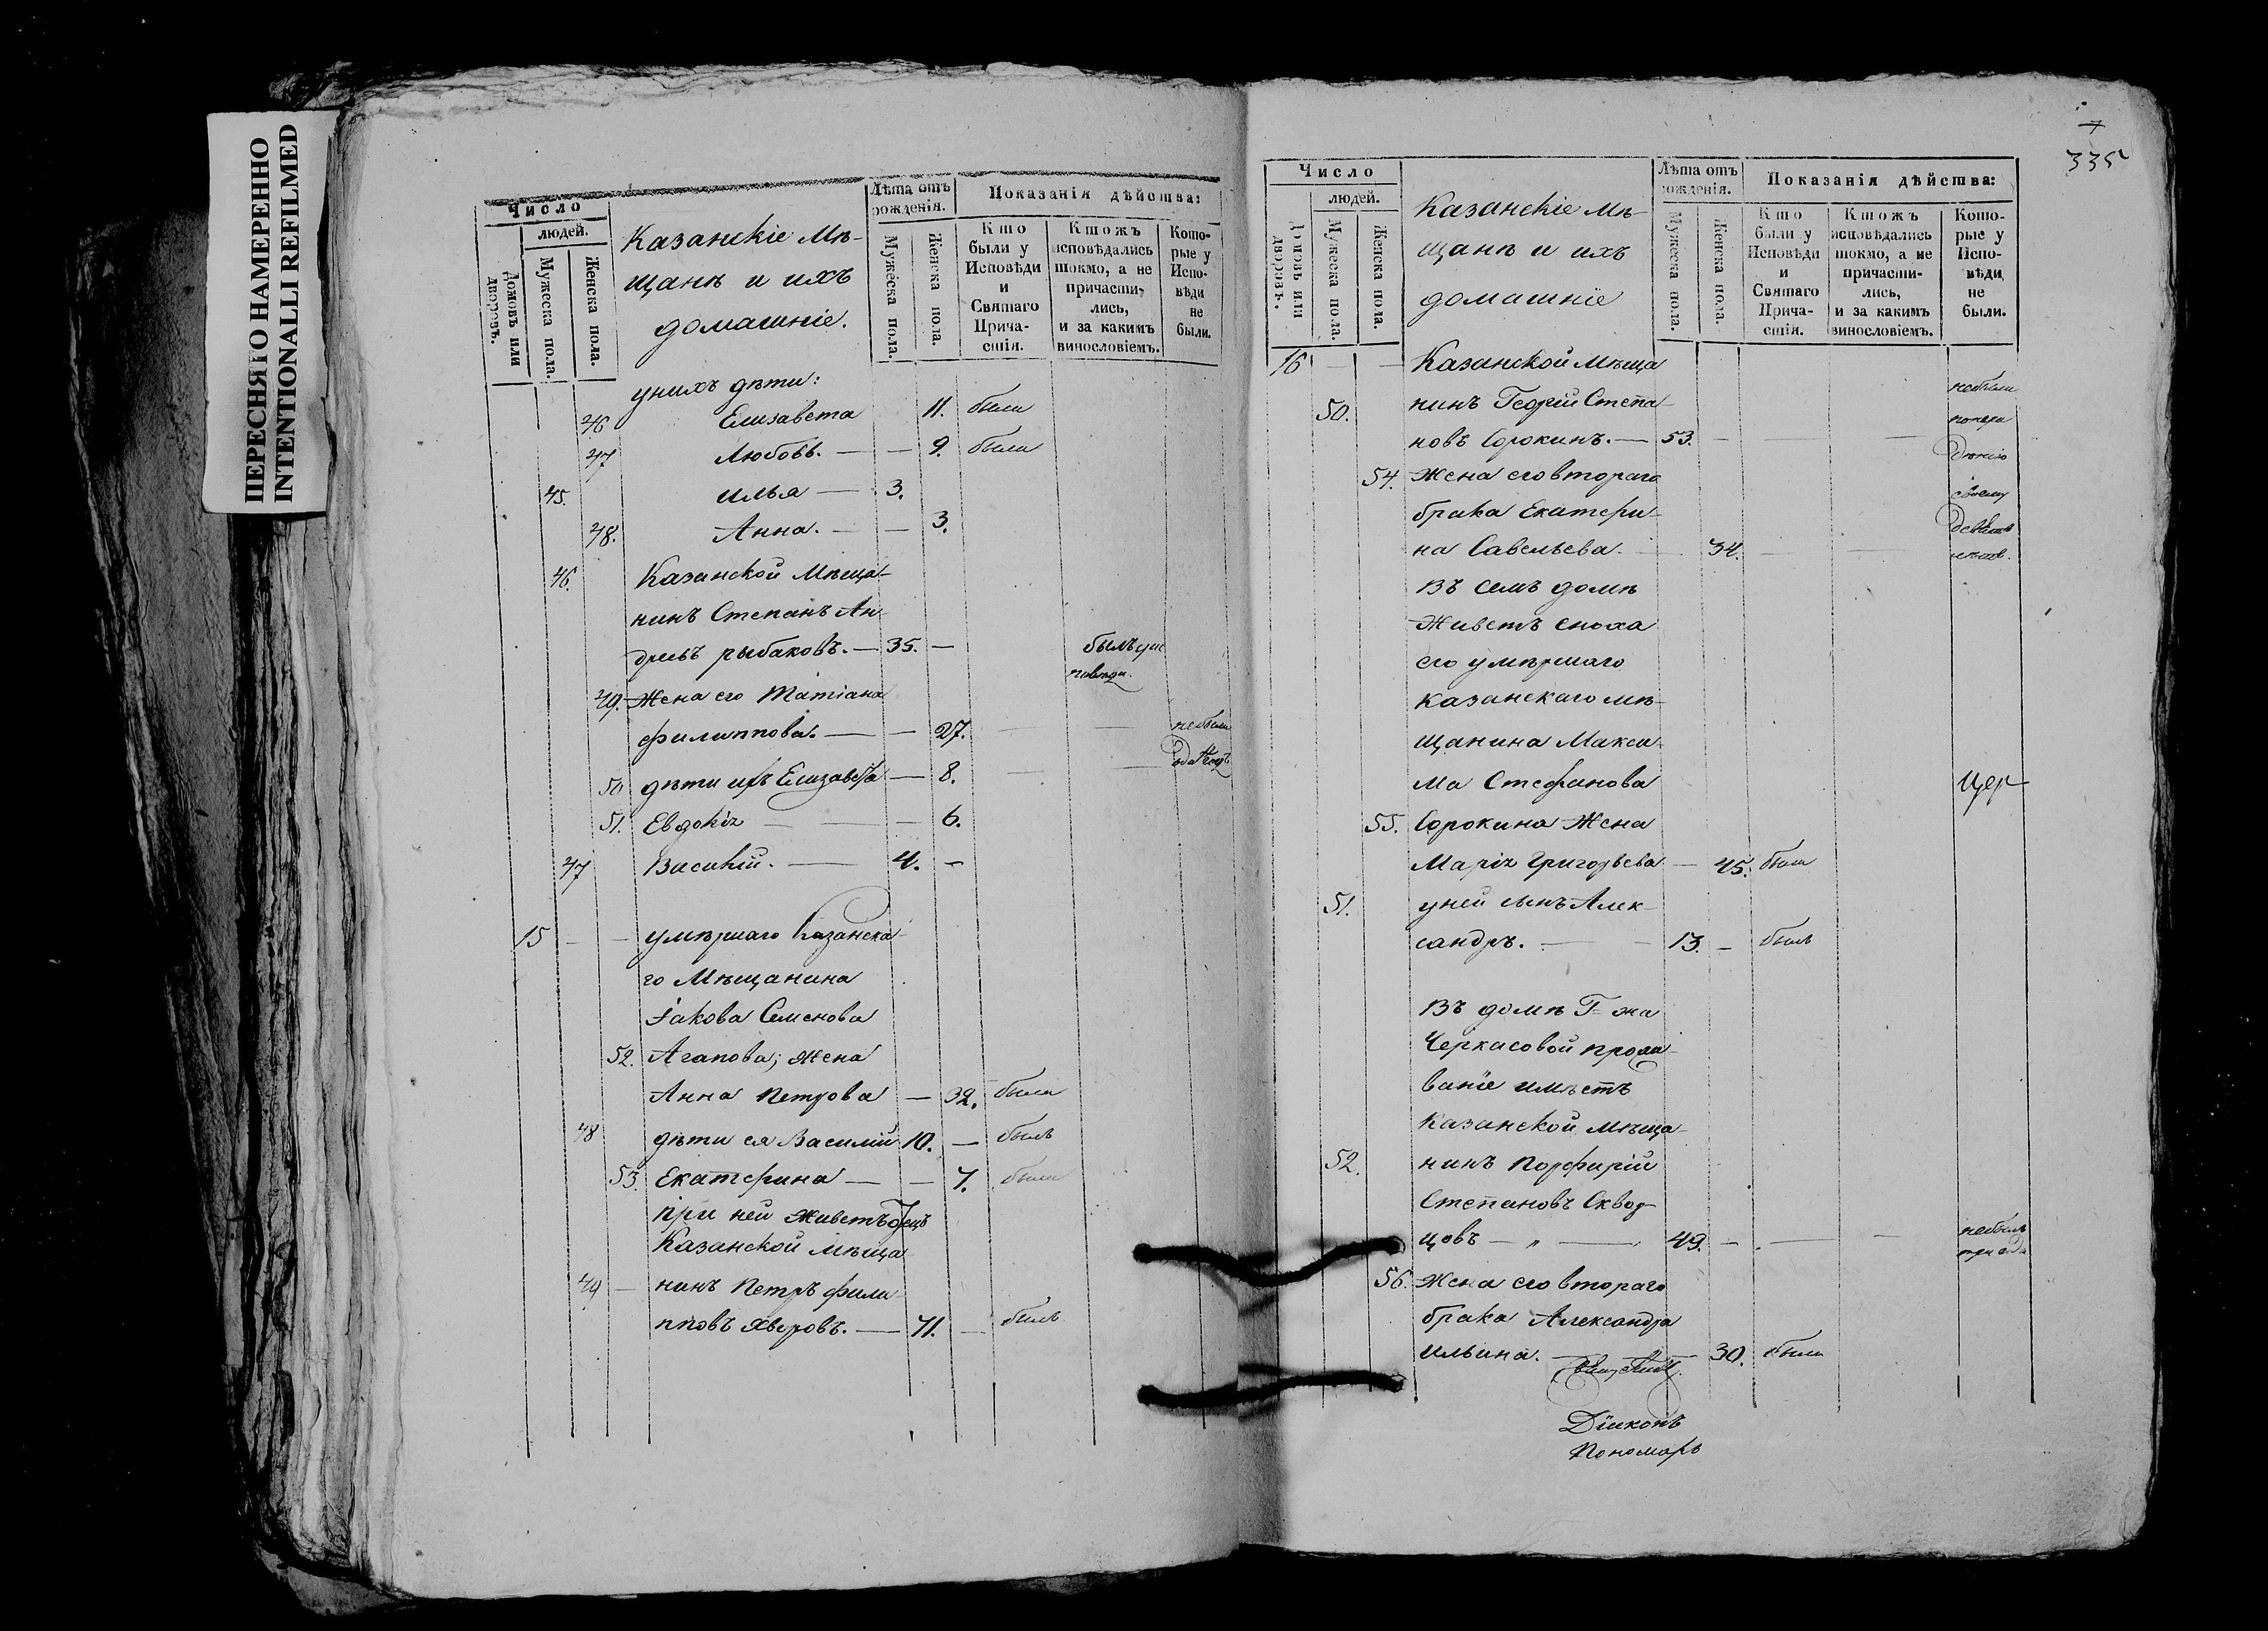 ПЕРЕСНЯТО НАМЕРЕННО
INTENTIONALLI REFILMED
Число
людей.
Домовъ или дворовъ.
Мужеска пола.
Женска пола.
Казанскіе мѣ-
щанѣ и ихъ
домашніе.
Лѣта отъ рожденія.
Мужеска пола.
Женска пола.
Показанія дѣйства:
Кто были у Исповѣди и Святаго Прича-стія.
Ктожъ исповѣдались токмо, а не причасти-лись, и за какимъ винословіемъ.
Кото-рые у Испо-вѣди не были.
унихъ дѣти:
46 Елизавета 11. была
47 Любовь. — — 9. была
45. илья — 3.
48. Анна. — — 3.
46. Казанской мѣща-
нинъ Степанъ Ан
дреевъ рыбаковъ. — 35. — былъ уис
повѣди.
49. Жена его Татіана
филиппова. — — 27. небыла
50 дѣти ихъ Елизавета — 8.
51. Евдокія — — 6.
47 Василій. — 4. —
15 — — умершаго Казанска-
го Мѣщанина
Іакова Семенова
52. Агапова; жена
Анна Петрова — 32. была
48 дѣти ея Василій 10. — былъ
53. Екатерина — — 7. была
при ней живетъ отецъ
Казанской мѣща
49 — нинъ Петръ фили
пповъ — 71. — былъ
335
Число
людей.
Домовъ или дворовъ.
Мужеска пола.
Женска пола.
Казанскіе мѣ-
щанѣ и ихъ
домашніе
Лѣта отъ рожденія.
Мужеска пола.
Женска пола.
Показанія дѣйства:
Кто были у Исповѣди и Святаго Прича-стія.
Ктожъ исповѣдались токмо, а не причасти-лись, и за какимъ винословіемъ.
Кото-рые у Испо-вѣди не были.
16 — — Казанской мѣща
50. нинъ Георгій Степа- небыли
новъ Сорокинъ. — 53. — — —
54. Жена его втораго
брака Екатери- своему
на Савельева. — 34. — —
Въ семъ домѣ
живетъ сноха
его умершаго
казанскаго мѣ-
щанина Макси-
ма Стефанова
Цер
55. Сорокина жена
Марія Григорьева — 45. была
51. уней сынъ Алек-
сандръ. — — 13. — былъ
Въ домѣ Г-жи
Черкасовой прожи-
ваніе имѣетъ
Казанской мѣща-
52. нинъ Порфирій
Степановъ Сквор
цовъ — „ — 49. — — — небылъ
56. Жена его втораго
брака Александра
Ильина. — 30. была
Діаконъ
Пономарь